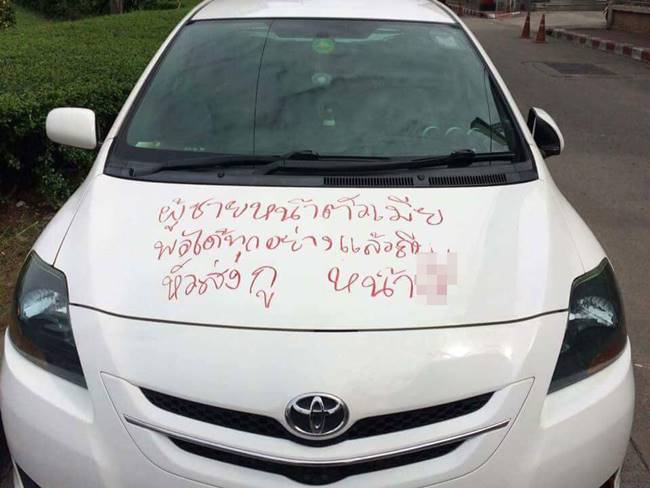 ผู้ชายหน้าตัวเมีย
พอได้ทุกอย่างแล้วถีบ
หัวส่งกู หน้า